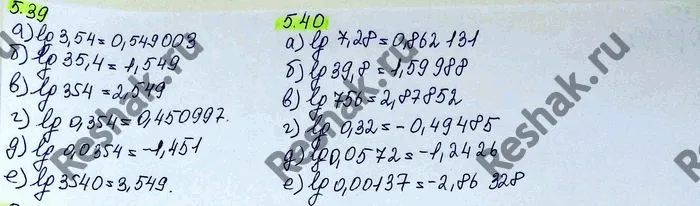 5.39
а) lg 3,54 = 0,549003
б) lg 35,4 = 1,549
в) lg 354 = 2,549
г) lg 0,354 = 0,450997.
д) lg 0,0354 = -1,451
е) lg 3540 = 3,549.
5.40
а) lg 7,28 = 0,862131
б) lg 39,8 = 1,59988
в) lg 756 = 2,87852
г) lg 0,32 = -0,49485
д) lg 0,0572 = -1,2426
е) lg 0,00137 = -2,86328
Reshak.ru
Reshak.ru
Reshak.ru
Reshak.ru